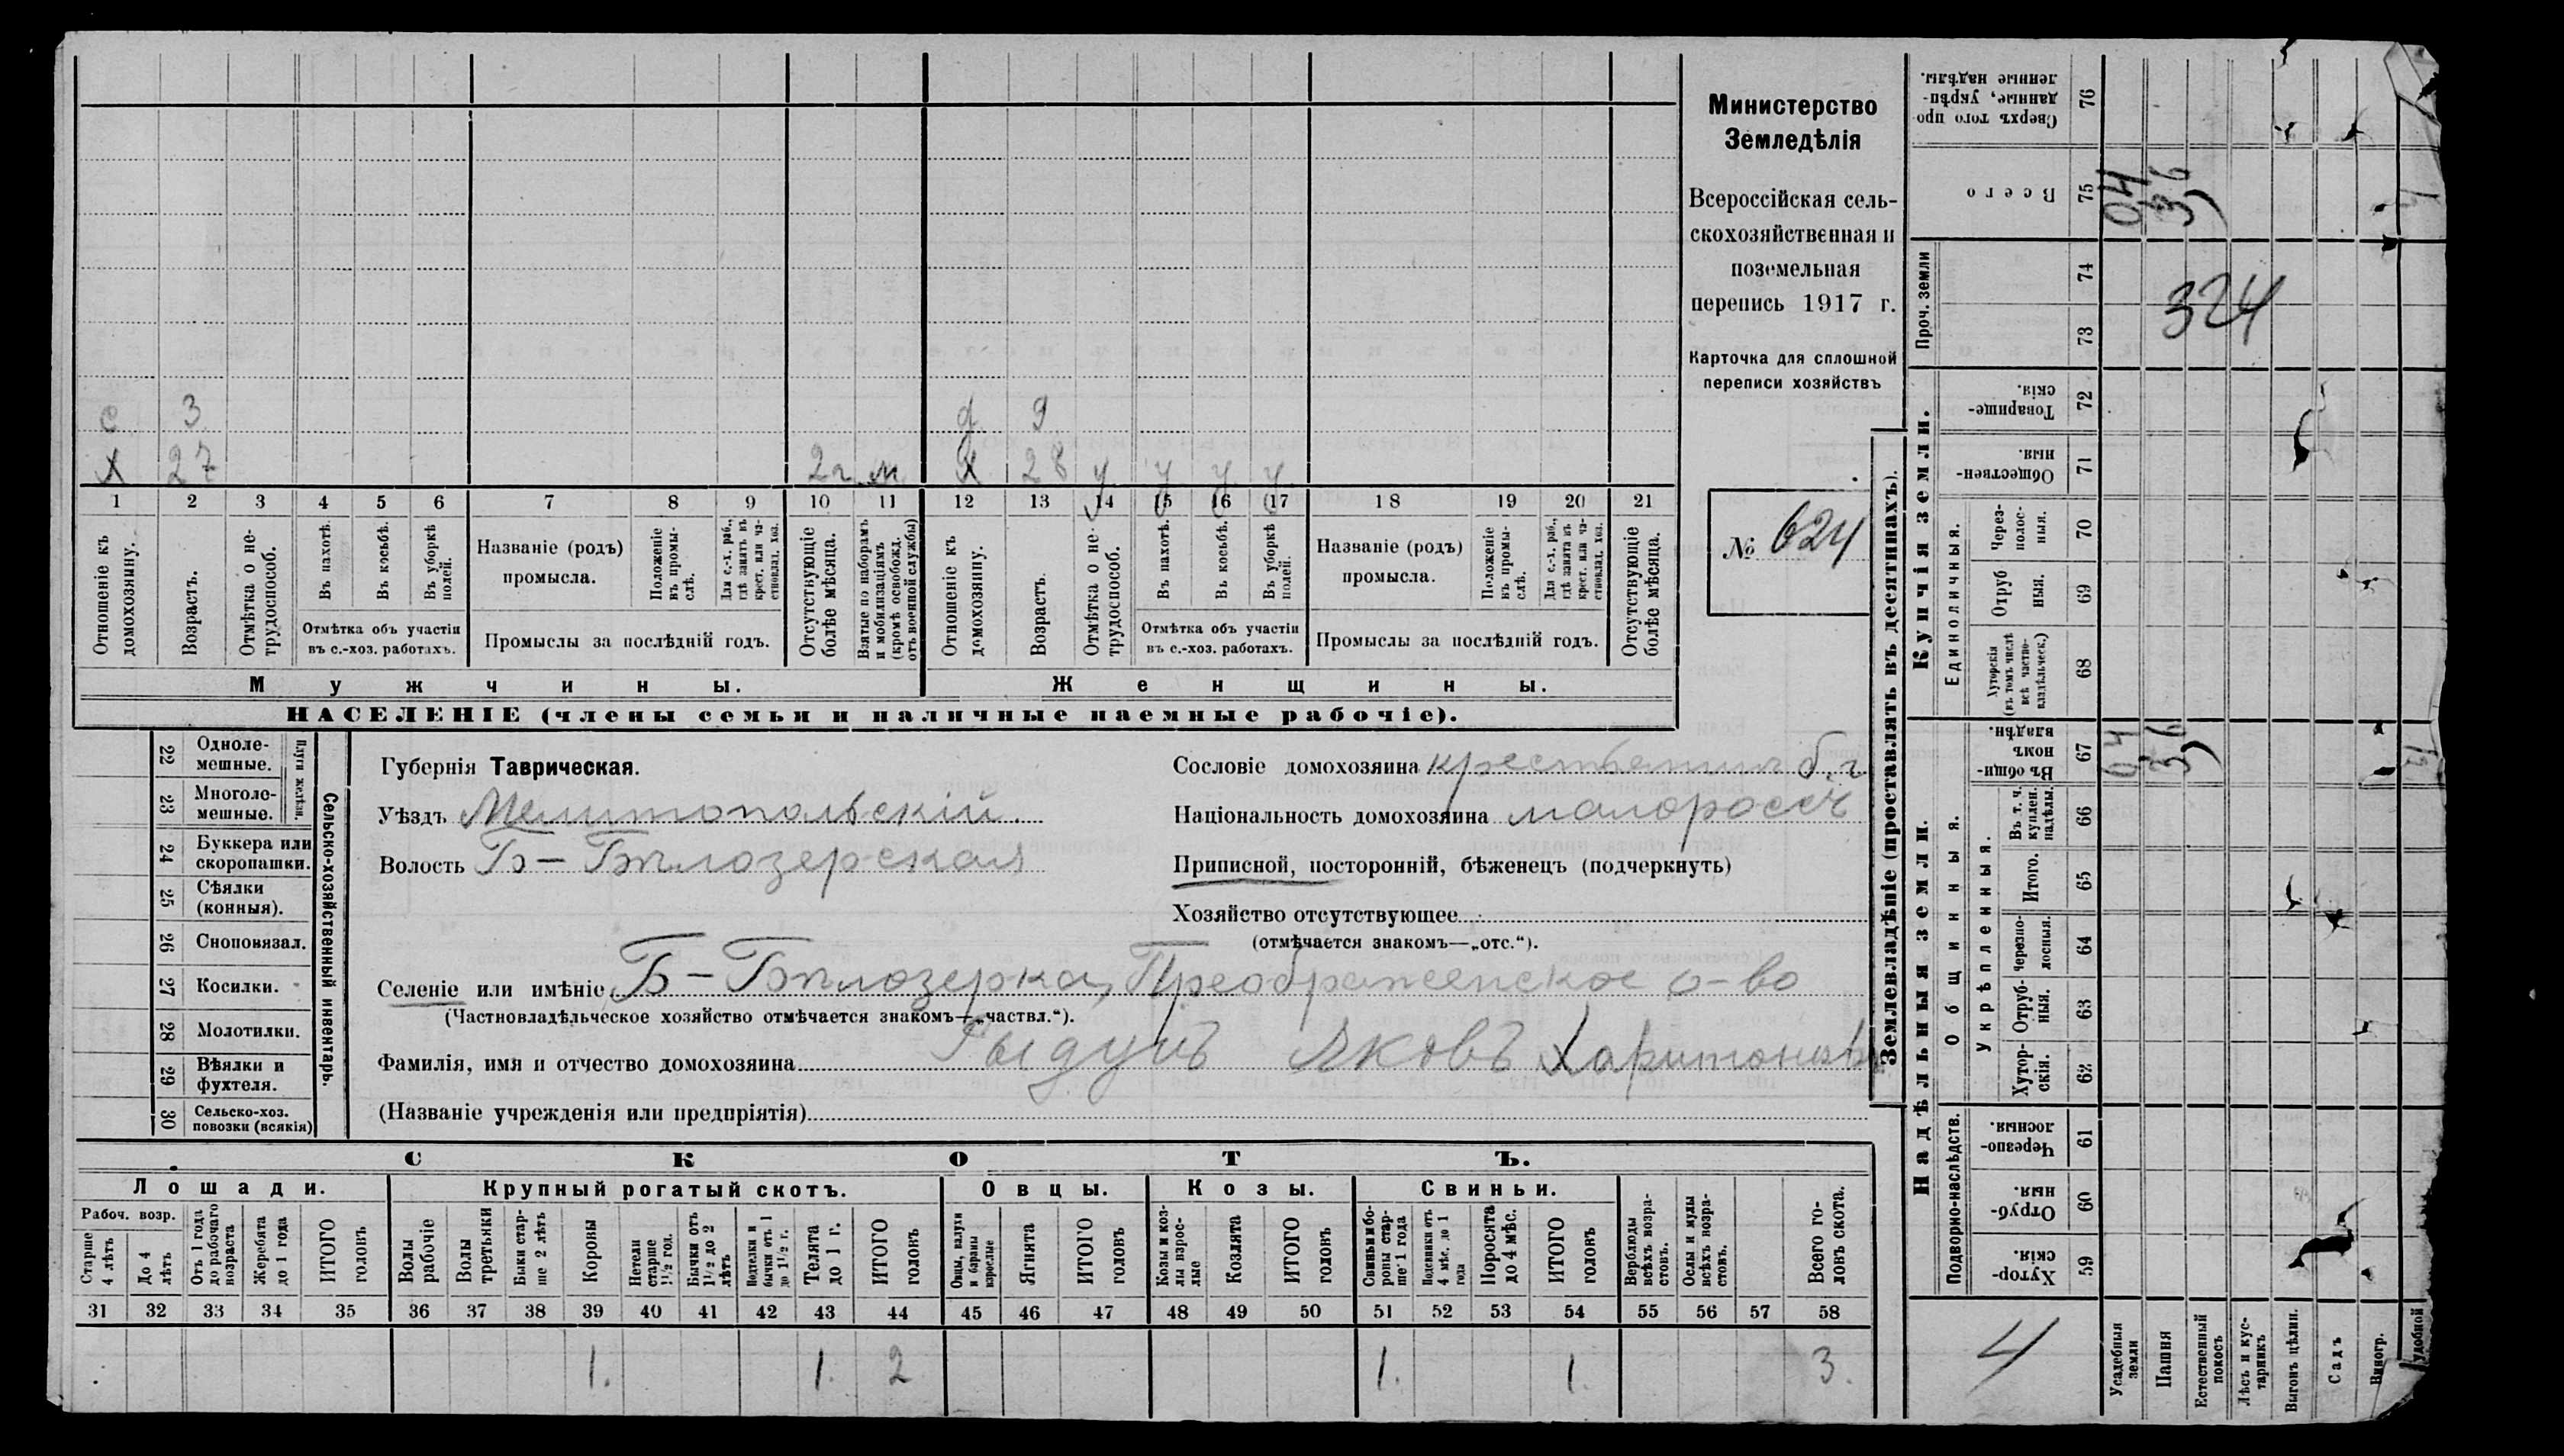 Министерство
Земледѣлія
Всероссійская сель-
скохозяйственная и
поземельная
перепись 1917 г.
Карточка для сплошной
переписи хозяйствъ
№ 624
с 3 д 9
х 27 2 г м х 28 у у у у
1 2 3 4 5 6 7 8 9 10 11 12 13 14 15 16 17 18 19 20 21
Отношеніе къ домохозяину.
Возрастъ.
Отмѣтка о не-трудоспособ.
Въ пахотѣ.
Въ косьбѣ.
Въ уборкѣ полей.
Отмѣтка объ участіи
въ с.-хоз. работахъ.
Названіе (родъ)
промысла.
Положеніе въ промы-слѣ.
Для с.-х. раб., гдѣ занятъ въ крест. или ча-стновлад. хоз.
Промыслы за послѣдній годъ.
Отсутствующіе болѣе мѣсяца.
Взятые по наборамъ и мобилизаціямъ (кромѣ освобожд. отъ военной службы)
Отношеніе къ домохозяину.
Возрастъ.
Отмѣтка о не-трудоспособ.
Въ пахотѣ.
Въ косьбѣ.
Въ уборкѣ полей.
Отмѣтка объ участіи
въ с.-хоз. работахъ.
Названіе (родъ)
промысла.
Положеніе въ промы-слѣ.
Для с.-х. раб., гдѣ занята въ крест. или ча-стновлад. хоз.
Промыслы за послѣдній годъ.
Отсутствующіе болѣе мѣсяца.
Мужчины. Женщины.
НАСЕЛЕНІЕ (члены семьи и наличные наемные рабочіе).
Сельско-хозяйственный инвентарь.
Плуги желѣзн.
22 Одноле-мешные.
23 Многоле-мешные.
24 Буккера или скоропашки.
25 Сѣялки (конныя).
26 Сноповязал.
27 Косилки.
28 Молотилки.
29 Вѣялки и фухтеля.
30 Сельско-хоз. повозки (всякія)
Губернія Таврическая.
Уѣздъ Мелитопольскій.
Волость Б-Бѣлозерская
Сословіе домохозяина крестьянинъ б. г
Національность домохозяина малороссъ
Приписной, посторонній, бѣженецъ (подчеркнуть)
Хозяйство отсутствующее
(отмѣчается знакомъ—„отс.“).
Селеніе или имѣніе Б-Бѣлозерка, Преображенское о-во
(Частновладѣльческое хозяйство отмѣчается знакомъ—„частвл.“).
Фамилія, имя и отчество домохозяина Яковъ Харитоновъ
(Названіе учрежденія или предпріятія)
СКОТЪ.
Лошади. Крупный рогатый скотъ. Овцы. Козы. Свиньи.
Рабоч. возр.
Старше 4 лѣтъ
До 4 лѣтъ
Отъ 1 года до рабочаго возраста
Жеребята до 1 года
ИТОГО головъ
Волы рабочіе
Волы третьяки
Быки стар-ше 2 лѣтъ
Коровы
Нетели старше 1½ год.
Бычки отъ 1½ до 2 лѣтъ
Подтелки и бычки отъ 1 до 1½ г.
Телята до 1 г.
ИТОГО головъ
Овцы, валухи и бараны взрослые
Ягнята
ИТОГО головъ
Козы и коз-лы взрос-лые
Козлята
ИТОГО головъ
Свиньи и бо-ровы стар-ше 1 года
Подсвинки отъ 4 мѣс. до 1 года
Поросята до 4 мѣс.
ИТОГО головъ
Верблюды всѣхъ возра-стовъ.
Ослы и мулы всѣхъ возра-стовъ.
Всего го-ловъ скота.
31 32 33 34 35 36 37 38 39 40 41 42 43 44 45 46 47 48 49 50 51 52 53 54 55 56 57 58
1. 1. 2 1. 1. 3.
Землевладѣніе (проставлять въ десятинахъ).
Сверхъ того про-данные, укрѣп-ленные надѣлы. 76
Всего 75 04 36
Проч. земли
74
73
324
Купчія земли.
Товарище-скія. 72
Обществен-ныя. 71
Единоличныя.
Через-полос-ныя. 70
Отруб ныя. 69
Хуторскія (въ томъ числѣ всѣ частно-владѣльческ.) 68
Надѣльныя земли.
Общинныя.
Въ общи-номъ владѣн. 67 04 36
Укрѣпленныя.
Въ т. ч. куплен. надѣлы. 66
Итого. 65
Черезпо-лосныя. 64
Отруб-ныя. 63
Хутор-скія. 62
Подворно-наслѣдств.
Черезпо-лосныя. 61
Отруб-ныя. 60
Хутор-скія. 59
4
Усадебныя земли
Пашня
Естественный покосъ
Лѣсъ и кус-тарникъ
Выгонъ цѣлин.
Садъ
Виногр.
удобной